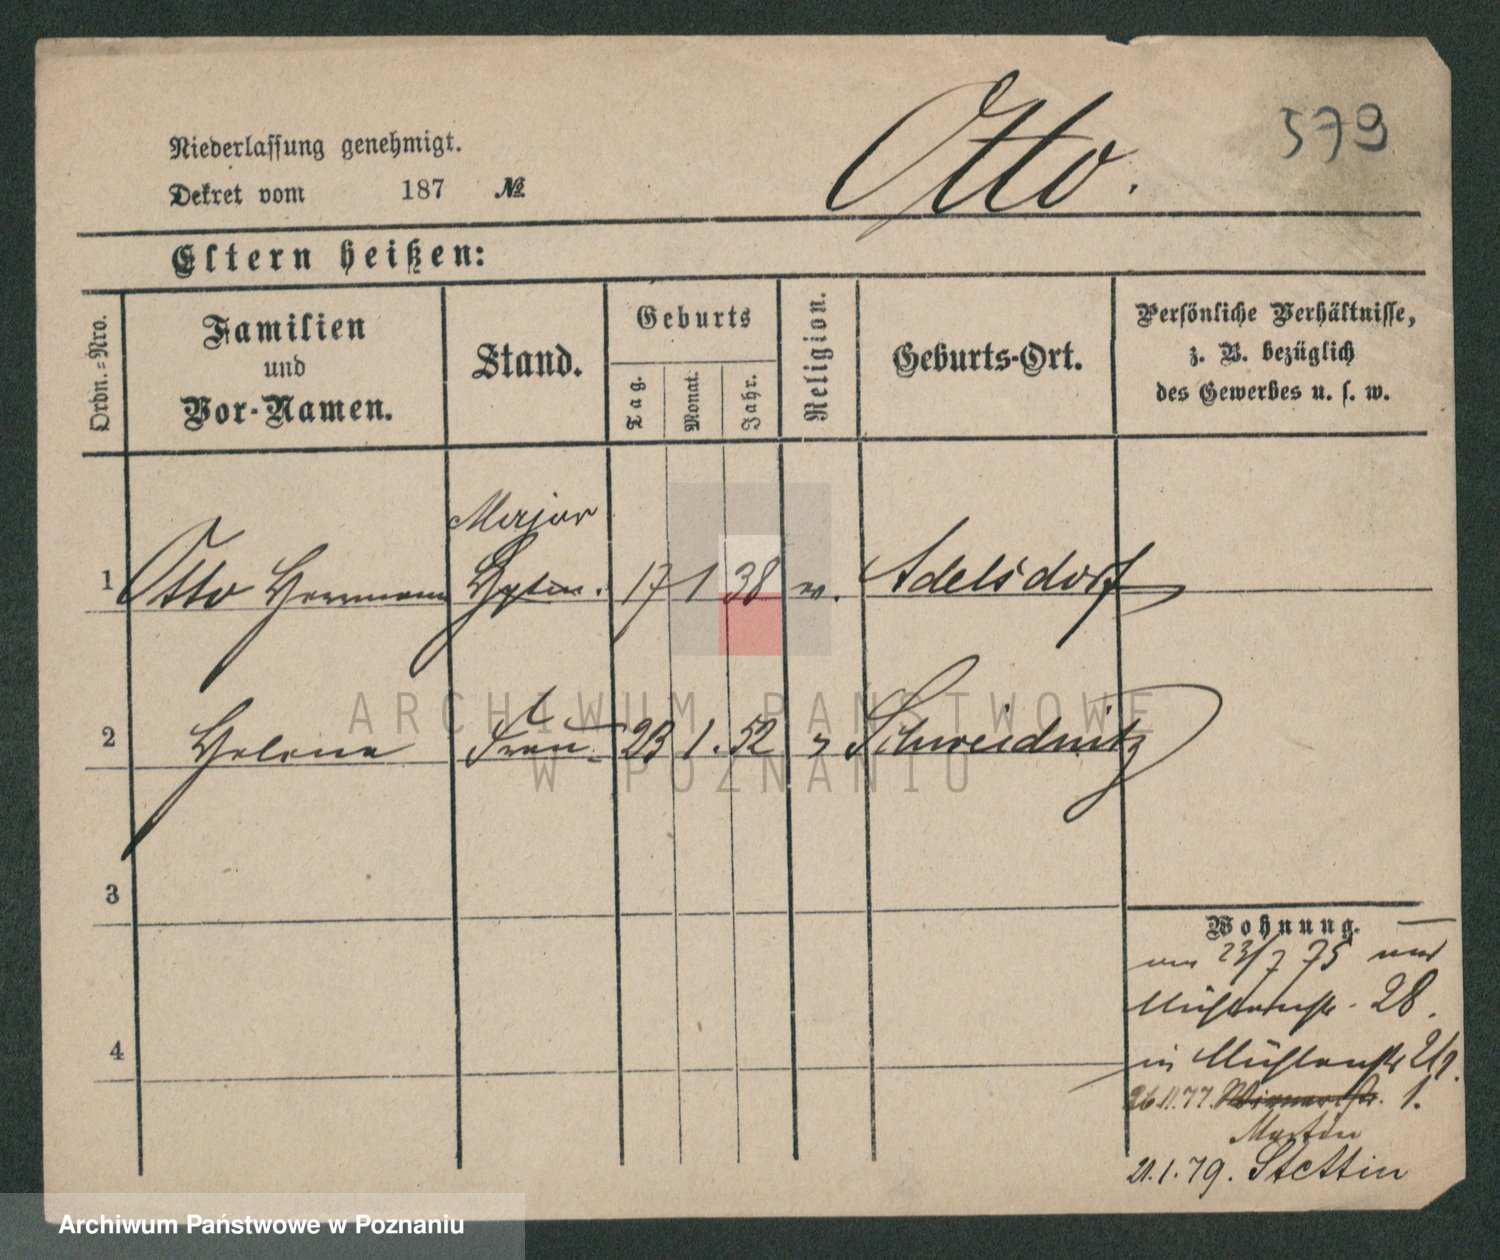 Otto.
579
Niederlassung genehmigt.
Dekret vom 187 №
Eltern heißen:
Ordn.-Nro.
Familien
und
Vor-Namen.
Stand.
Geburts
Tag.
Monat.
Jahr.
Religion.
Geburts-Ort.
Persönliche Verhältnisse,
z. B. bezüglich
des Gewerbes u. s. w.
Major
1 Otto Herrmann Hptm. 17 1 38 Adelsdorf
2 Helene Frau 23 1. 52 Schweidnitz
3
4
Wohnung.
23/7 75
Mühlenstr. 28.
in Mühlenstr
26.11.77. 1.
Martin
21.1.79. Stettin
ARCHIWUM PAŃSTWOWE
W POZNANIU
Archiwum Państwowe w Poznaniu